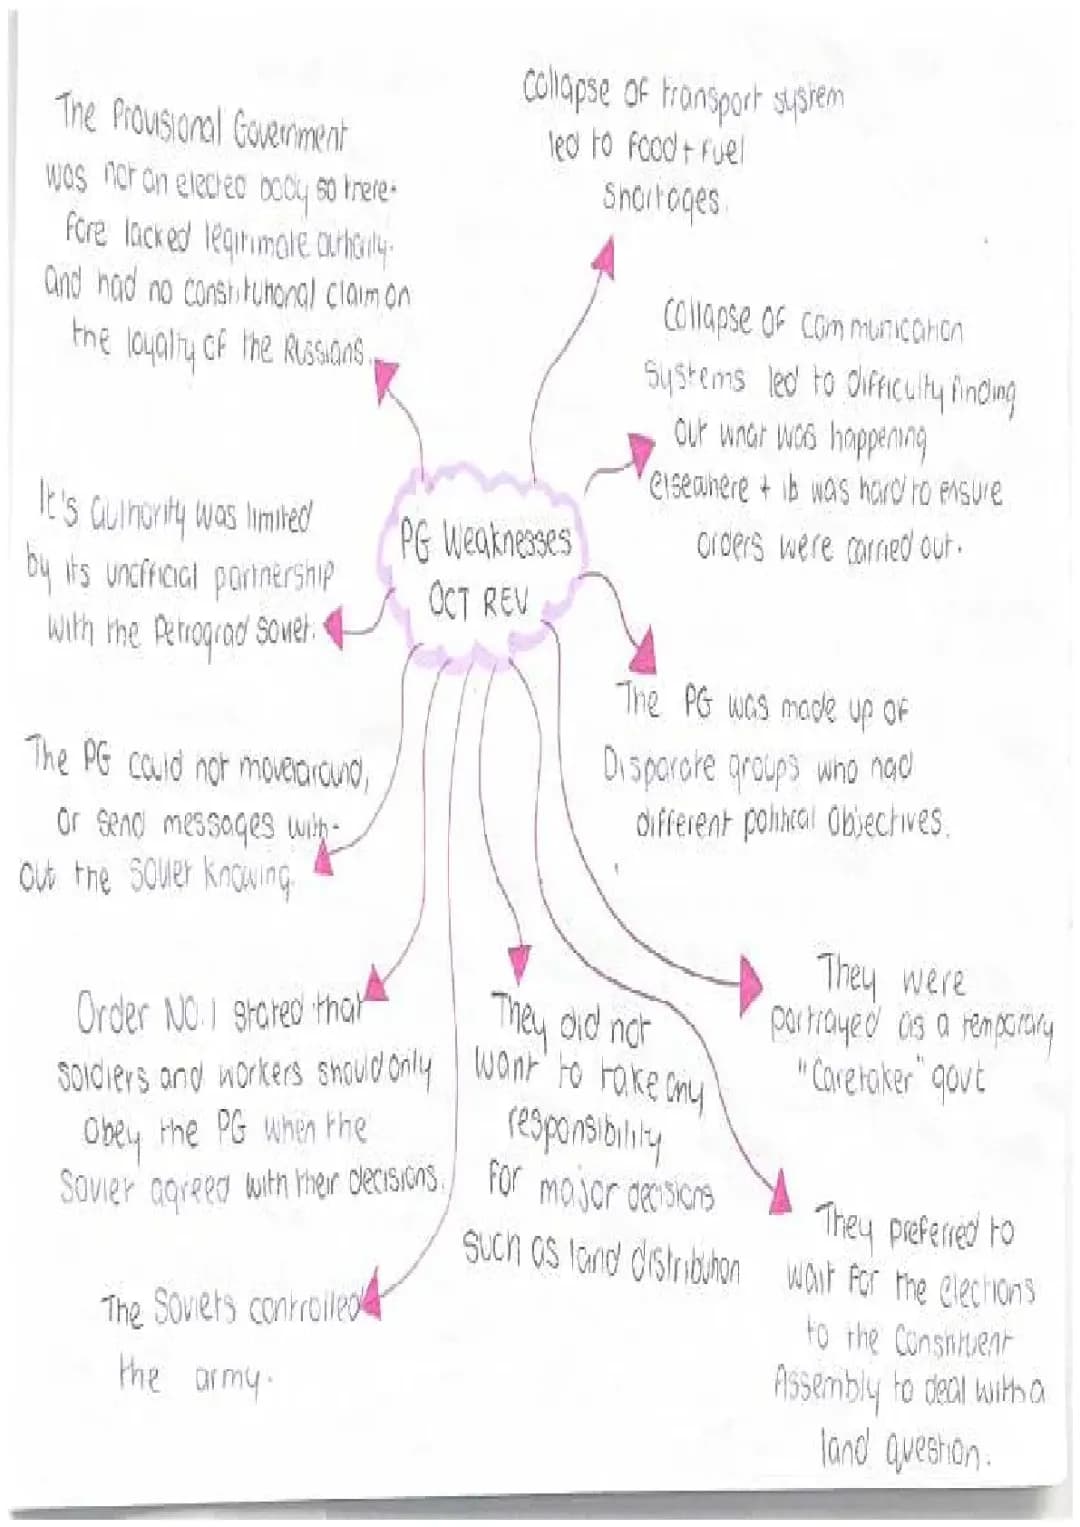 The Provisional Government
was not an elected body so there-
fore lacked legitimate authority.
and had no constitutional claim on
the loyalty of the Russians.
Collapse of transport system
led to food + fuel
shortages.
Collapse of communication
systems led to difficulty finding
out what was happening
elsewhere + it was hard to ensure
orders were carried out.
It's authority was limited
by its unofficial partnership
with the Petrograd Soviet.
PG Weaknesses
OCT REV
The PG was made up of
Disparate groups who had
different political objectives.
The PG could not move around,
or send messages with-
out the Soviet knowing.
Order NO.1 stated that
soldiers and workers should only
obey the PG when the
Soviet agreed with their decisions.
They did not
want to take any
responsibility
for major decisions
such as land distribution
They were
portrayed as a temporary
"Caretaker" govt
The Soviets controlled
the army.
They preferred to
wait for the elections
to the Constituent
Assembly to deal with a
land question.